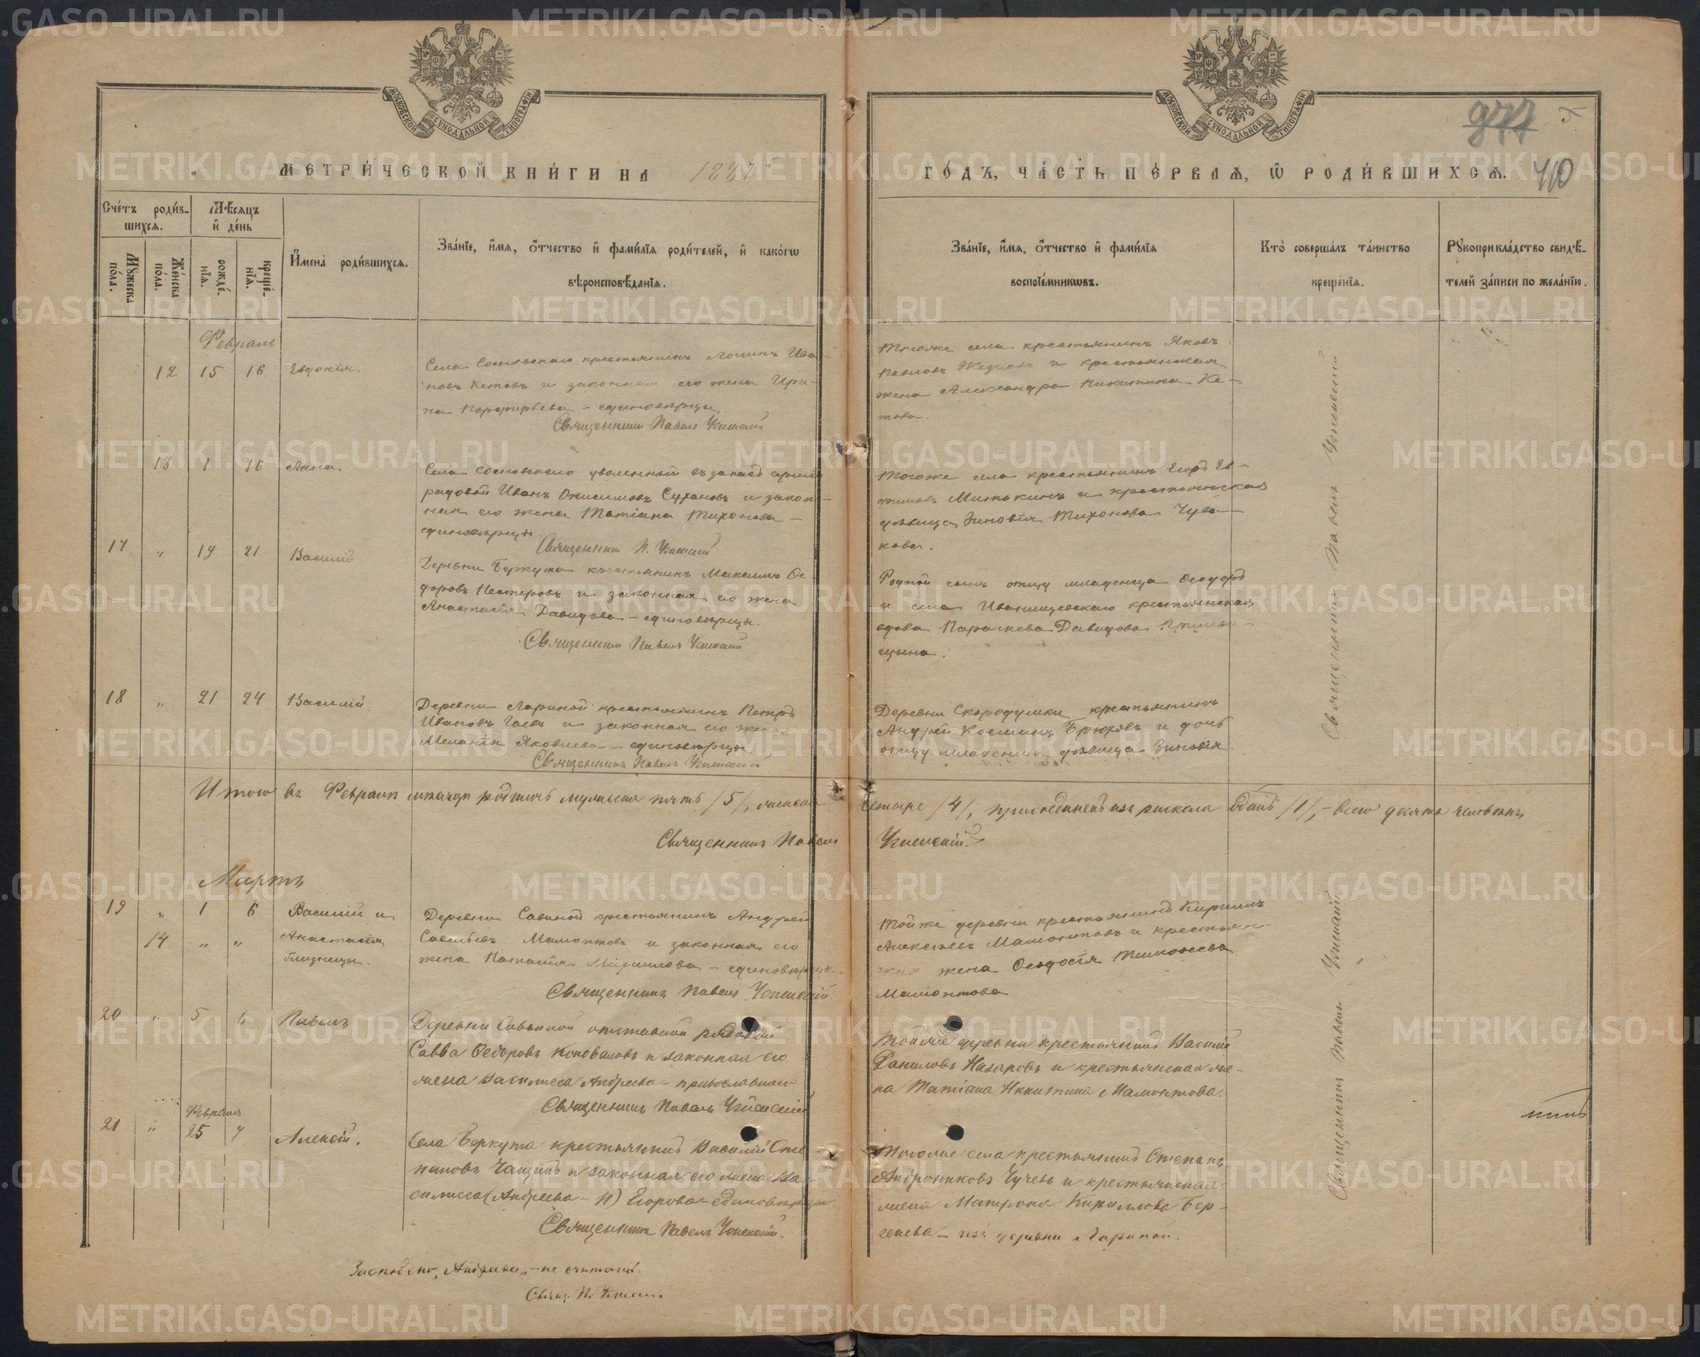 METRIKI.GASO-URAL.RU
МОСКОВСКОЙ СѴНОДАЛЬНОЙ ТИПОГРАФІИ
МОСКОВСКОЙ СѴНОДАЛЬНОЙ ТИПОГРАФІИ
МЕТРИ́ЧЕСКОЙ КНИ́ГИ НА
ГО́ДЪ, ЧА́СТЬ ПЕ́РВАѦ, Ѿ РОДИ́ВШИХСѦ.
40
Сче́тъ роди́в-
шихся.
Мѣсяцъ
и҆ де́нь
Мꙋжеска
по́ла.
Же́нска
по́ла.
рожде́-
нїя.
креще́-
нїя.
И҆мена̀ роди́вшихся.
Зва́нїе, и҆́мя, о҆́тчество и҆ фами́лїя роди́телей, и҆ како́гѡ
вѣроисповѣ́данїя.
Зва́нїе, и҆́мя, о҆́тчество и҆ фами́лїя
воспрїе́мникѡвъ.
Кто̀ соверша́лъ та́инство
креще́нїя.
Рꙋкоприкла́дство свидѣ́-
телей за́писи по жела́нїю.
Февраль
12 15 16 Евдокія
Села Сосновскаго крестьянинъ Логинъ Ива-
новъ Кетовъ и законная его жена Ири-
на Порфирьева – единоверцы
Священникъ Павелъ Успенскій
Тогоже села крестьянинъ Яковъ
Павловъ и крестьянская
жена Александра Никитина Ке-
това.
13 1 16 Анна
Села Сосновскаго уволенный въ запасъ арміи
рядовой Иванъ Онисимовъ Сухановъ и закон-
ная его жена Татіана Тихонова –
единоверцы
Священникъ П. Успенскій
Тогоже села крестьянинъ Егоръ Ев-
и крестьянская
девица Зиновія Тихонова Чува-
кова.
17 " 19 21 Василій
Деревни Беркута крестьянинъ Максимъ Ѳе-
доровъ Нестеровъ и законная его жена
Анастасія Давидова – единоверцы.
Священникъ Павелъ Успенскій
Родной сынъ отцу младенца Ѳеодоръ
и села Иванищевскаго крестьянская
вдова Параскева Давидова
18 " 21 24 Василій
Деревни Лариной крестьянинъ Петръ
Ивановъ и законная его жена
Меланія Яковлева – единоверцы
Священникъ Павелъ Успенскій
Деревни Скородумки крестьянинъ
Андрей Косминъ Брюховъ и дочь
отцу младенца девица Зиновія
Итого въ Февралѣ месяцѣ родилось мужеска пять /5/, женска четыре /4/, присоединенъ изъ раскола одинъ /1/, – всего десять человѣкъ
Священникъ Павелъ Успенскій
Мартъ
19 " 1 6 Василій и
14 " " Анастасія
близнецы.
Деревни Савиной крестьянинъ Андрей
Савельевъ Мамонтовъ и законная его
жена Наталія – единоверцы.
Священникъ Павелъ Успенскій
Тойже деревни крестьянинъ Кириллъ
Алексеевъ Мамонтовъ и крестьян-
ская жена Ѳеодосія Тимофеева
Мамонтова
20 " 5 6 Павелъ
Деревни Савиной отставной рядовой
Савва Ѳедоровъ Коноваловъ и законная его
жена Василиса Андреева – православнаго
Священникъ Павелъ Успенскій
Тойже деревни крестьянинъ Василій
Даниловъ Назаровъ и крестьянская же-
на Татіана Никитина Мамонтова.
Февраля
21 " 25 7 Алексій.
Села Беркута крестьянинъ Василій Сте-
пановъ и законная его жена Ва-
силисса (Андреева – П) Егорова – единоверцы
Священникъ Павелъ Успенскій.
Тогоже села крестьянинъ Степанъ
и крестьянская
жена Матрона Кириллова Бер-
сенева – изъ деревни Лариной.
Священникъ Павелъ Успенскій
Священникъ Павелъ Успенскій
Зачеркнуто „Андреева" – не считать.
Свящ. П. Успенскій